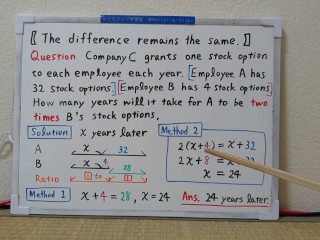 〚 The difference remains the same. 〛
Question Company C grants one stock option
to each employee each year. [Employee A has
32 stock options] [Employee B has 4 stock options]
How many years will it take for A to be two
times B's stock options.
Solution x years later
Method 2
A x 32
B x 4 28
Ratio 1 to 1
2(x+4) = x+32
2x+8 = x+32
x = 24
Method 1 x+4 = 28, x = 24
Ans. 24 years later.